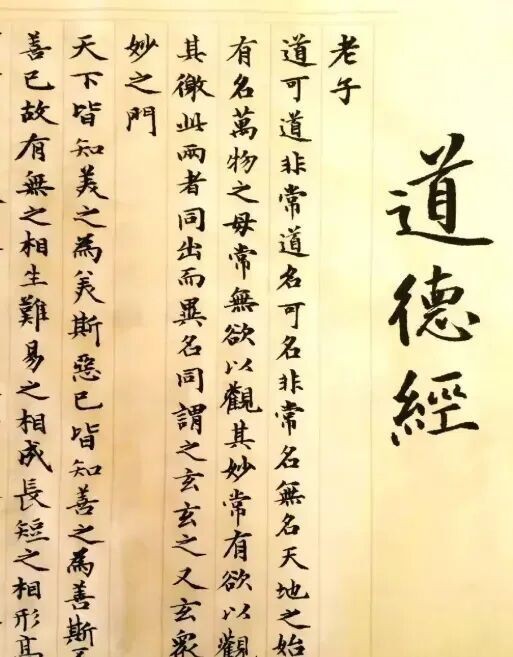 道德經
老子
道可道非常道名可名非常名無名天地之始
有名萬物之母常無欲以觀其妙常有欲以觀
其徼此兩者同出而異名同謂之玄玄之又玄衆
妙之門
天下皆知美之為美斯惡已皆知善之為善斯不
善已故有無之相生難易之相成長短之相形高